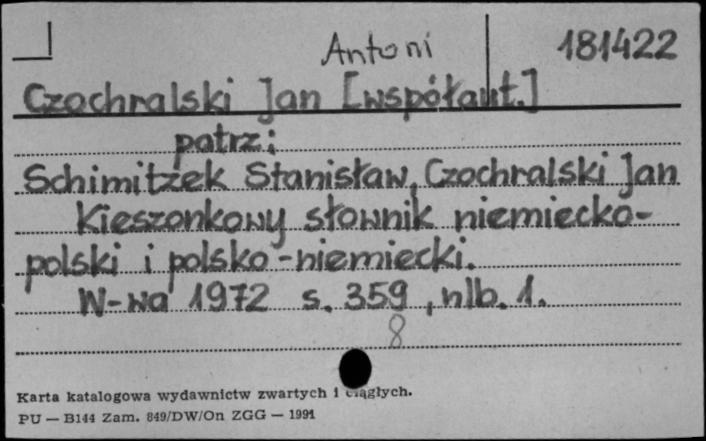 Antoni 181422
Czochralski Jan [współaut.]
patrz:
Schimitzek Stanisław, Czochralski Jan
Kieszonkowy słownik niemiecko-
polski i polsko-niemiecki.
W-wa 1972 s. 359, nlb. 1.
8
Karta katalogowa wydawnictw zwartych i ciągłych.
PU — B144 Zam. 849/DW/On ZGG — 1991